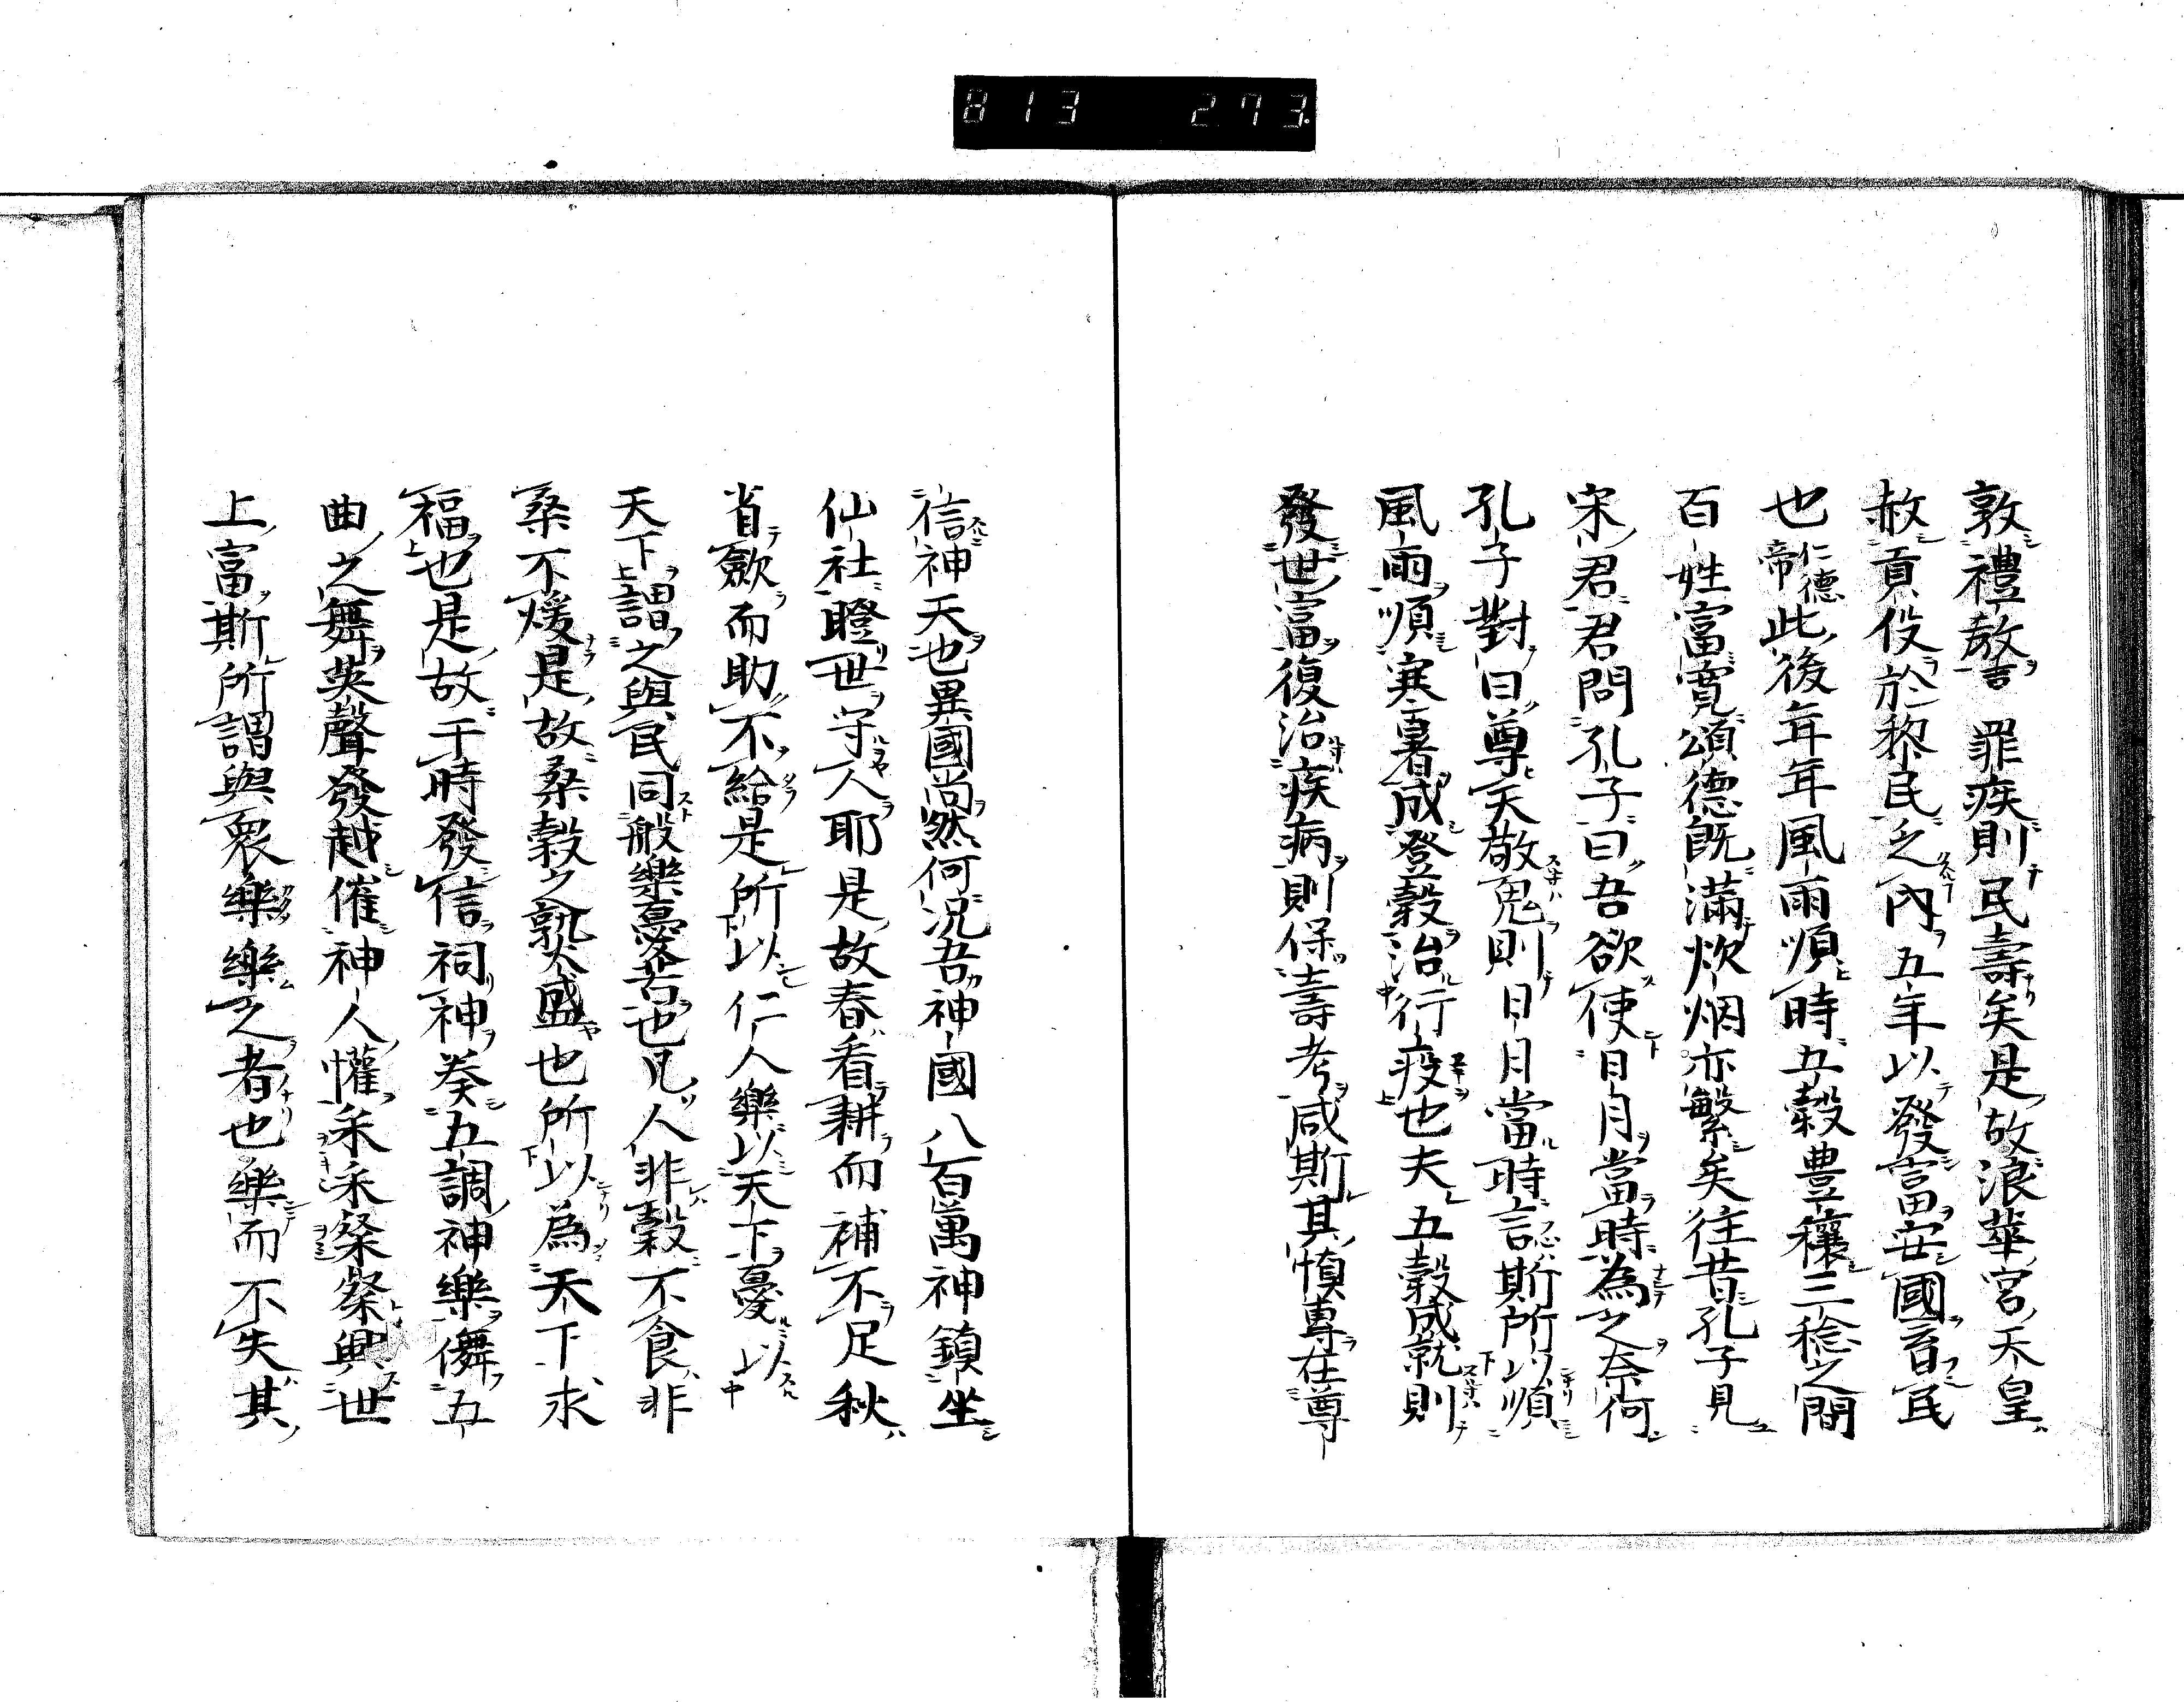 813 273
敦禮教 罪疾則民壽矣是故浪華宮天皇
赦貢役於黎民之內五年以發富安國育民
也仁德帝此後年年風雨順時五穀豊穰三稔之間
百姓富寬頌德既滿炊烟亦繁矣往昔孔子見
宋君君問孔子曰吾欲使日月當時為之奈何
孔子對曰尊天敬鬼則日月當時言斯所以順
風雨順寒暑成登穀治行疫也夫五穀成就則
發世富復治疾病則保壽考咸斯其慎專在尊
信神天也異國尚然何況吾神國八百萬神鎮坐
仙社瞪世守人耶是故春看耕而補不足秋
省歛而助不給是所以仁人樂以天下憂以
天下謂之與民同般樂憂苦也凡人非穀不食非
桑不煖是故桑穀之孰盛也所以為天下求
福也是故于時發信祠神奏五調神樂儛五
曲之舞英聲發越催神人懽采采粲粲興世
上富斯所謂與衆樂樂之者也樂而不失其